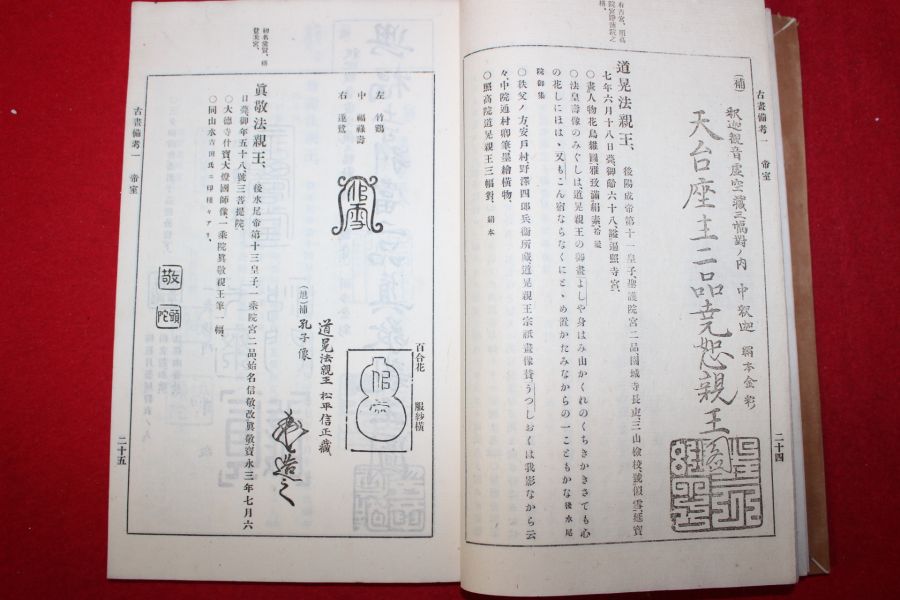 有吉宮、照高
院宮
古畫備考一　帝室
二十四
(補)　釈迦觀音虚空藏三幅對ノ内　中釈迦　絹本金彩
天台座主二品尭恕親王
道晃法親王、後陽成帝第十一皇子、聖護院宮二品、園城寺長吏、三山檢校、號似雪、延寶
七年六月十八日薨、御齡六十八、謚遍照寺宮、
○畫人物花鳥雜圖、雅致滿絹素、
○法皇壽像のみぐしは、道晃親王の御畫、よしや身はみ山かくれのくちきかきさても心
の花しにほはゝ、又もこん宿ならなくにとゝめ置かたみなからの一こともかな、後水尾
院御集
○秩父ノ方安戸村野澤四郎兵衞所藏、道晃親王宗祇畫像賛、うつしおくは我影なから云
々、中院通村卿筆墨繪橫物、
○照高院道晃親王三幅對、絹本
左　竹鶴
中　福祿壽
右　蓮鷺
百合花　服紗橫
道晃法親王　松平信正藏
(追)補　孔子像
初名
登美宮、
眞敬法親王、後水尾帝第十三皇子、一乘院宮二品、始名信敬、改眞敬、寶永三年七月六
日薨、御年五十八、號三菩提院、
○大德寺什寶大燈國師像、一乘院眞敬親王筆一幅、
○同山水
敬
古畫備考一　帝室
二十五